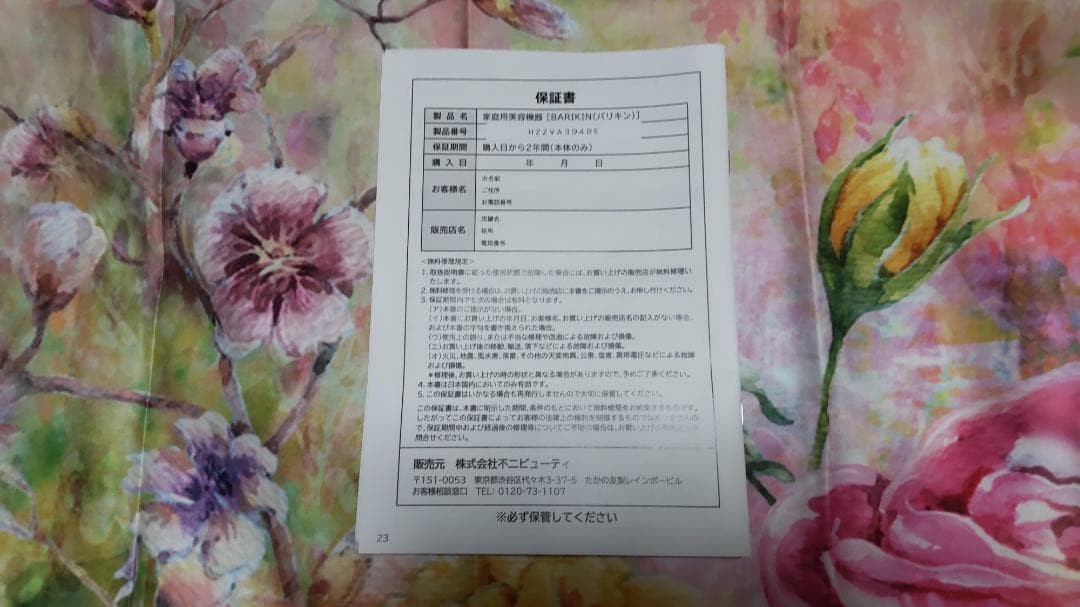 保証書
製品名 家庭用美容機器 [BARIKIN(バリキン)]
製品番号 HZZVA3948E
保証期間 購入日から2年間(本体のみ)
購入日 年 月 日
お客様名 お名前
ご住所
お電話番号
販売店名 店舗名
住所
電話番号
<無料修理規定>
1. 取扱説明書に従った使用状態で故障した場合には、お買い上げの販売店が無料修理い
たします。
2. 無料修理を受ける場合は、お買い上げの販売店に本書をご提示のうえ、お申し付けください。
3. 保証期間内でも次の場合は有料となります。
(ア)本書のご提示がない場合。
(イ)本書にお買い上げの年月日、お客様名、お買い上げの販売店名の記入がない場合、
および本書の字句を書き換えられた場合。
(ウ)使用上の誤り、または不当な修理や改造による故障および損傷。
(エ)お買い上げ後の移動、輸送、落下などによる故障および損傷。
(オ)火災、地震、風水害、落雷、その他の天変地異、公害、塩害、異常電圧などによる故障
および損傷。
*修理後、お買い上げの時の形状と異なる場合がありますので、予めご了承ください。
4. 本書は日本国内においてのみ有効です。
5. この保証書はいかなる場合も再発行しませんので大切に保管してください。
この保証書は、本書に明示した期間、条件のもとにおいて無料修理をお約束するものです。
したがってこの保証書によってお客様の法律上の権利を制限するものではありませんの
で、保証期間中および経過後の修理等についてご不明の場合は、お買い上げの販売店にお
問合せください。
販売元 株式会社不二ビューティ
〒151-0053 東京都渋谷区代々木3-37-5 たかの友梨レインボービル
お客様相談窓口 TEL: 0120-73-1107
※必ず保管してください
23